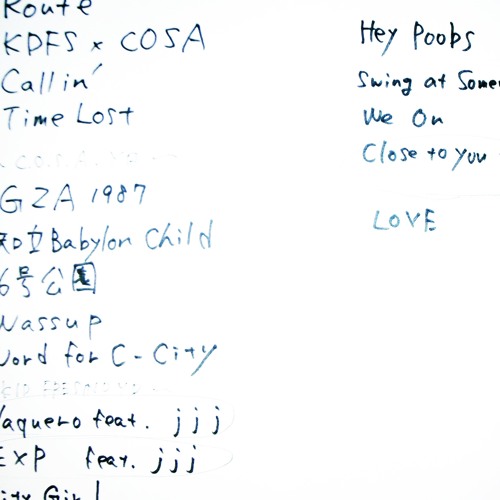 Route
KDFS x COSA
Callin'
Time Lost
GZA 1987
知立Babylon Child
6号公園
Wassup
Word for C-City
Vaquero feat. jjj
EXP feat. jjj
City Girl
Hey Poobs
Swing at Some
We On
Close to you
LOVE